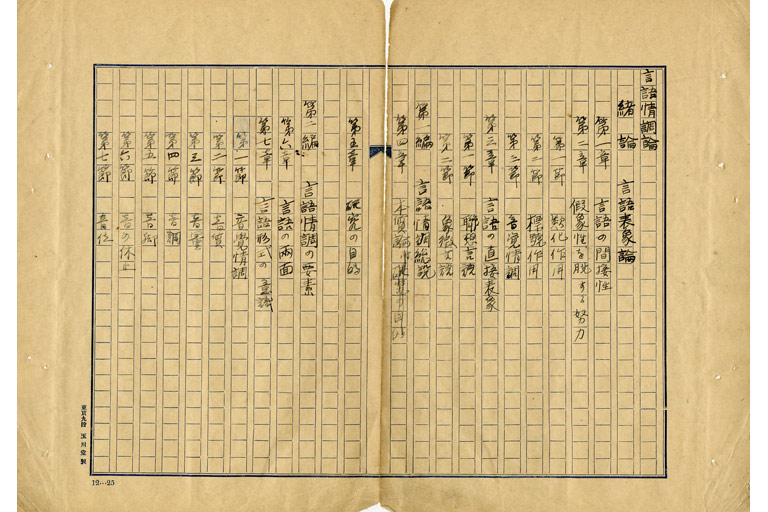 言語情調論
緒論 言語表象論
第一章 言語の間接性
第二章 假象性を脱する努力
第一節 類化作用
第二節 標號作用
第三節 音覚情調
第三章 言語の直接表象
第一節 聯想言語
第二節 象徴言語
第一編 言語情調総説
第四章 本質論 研究の目的
第五章 研究の目的
第二編 言語情調の要素
第六章 言語の両面
第七章 言語形式の意識
第一節 音覚情調
第二節 音質
第三節 音量
第四節 音調
第五節 音脚
第六節 音の休止
第七節 音位
東京九段 玉川堂製
12…25